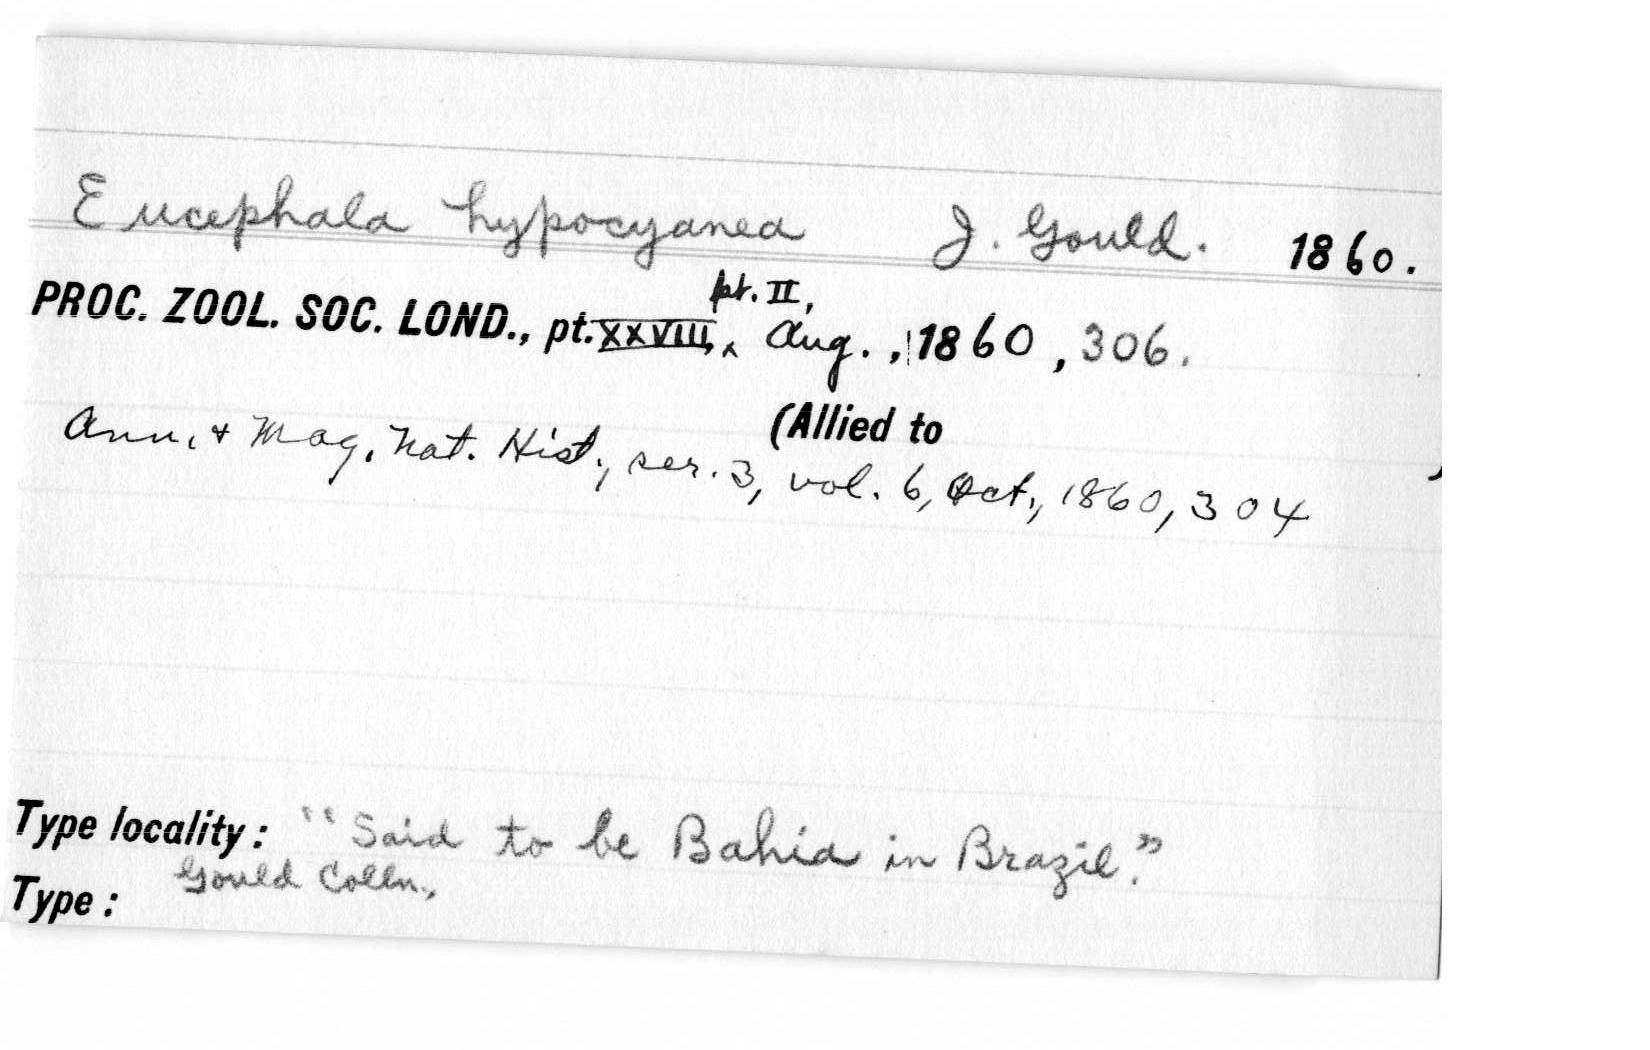 Eucephala hypocyanea J. Gould. 1860.
pt. II,
PROC. ZOOL. SOC. LOND., pt. XXVIII, ‸ Aug., 1860, 306.
(Allied to )
Ann. + Mag. Nat. Hist., ser. 3, vol. 6, Oct., 1860, 304
Type locality: "Said to be Bahia in Brazil."
Gould Colln.,
Type: